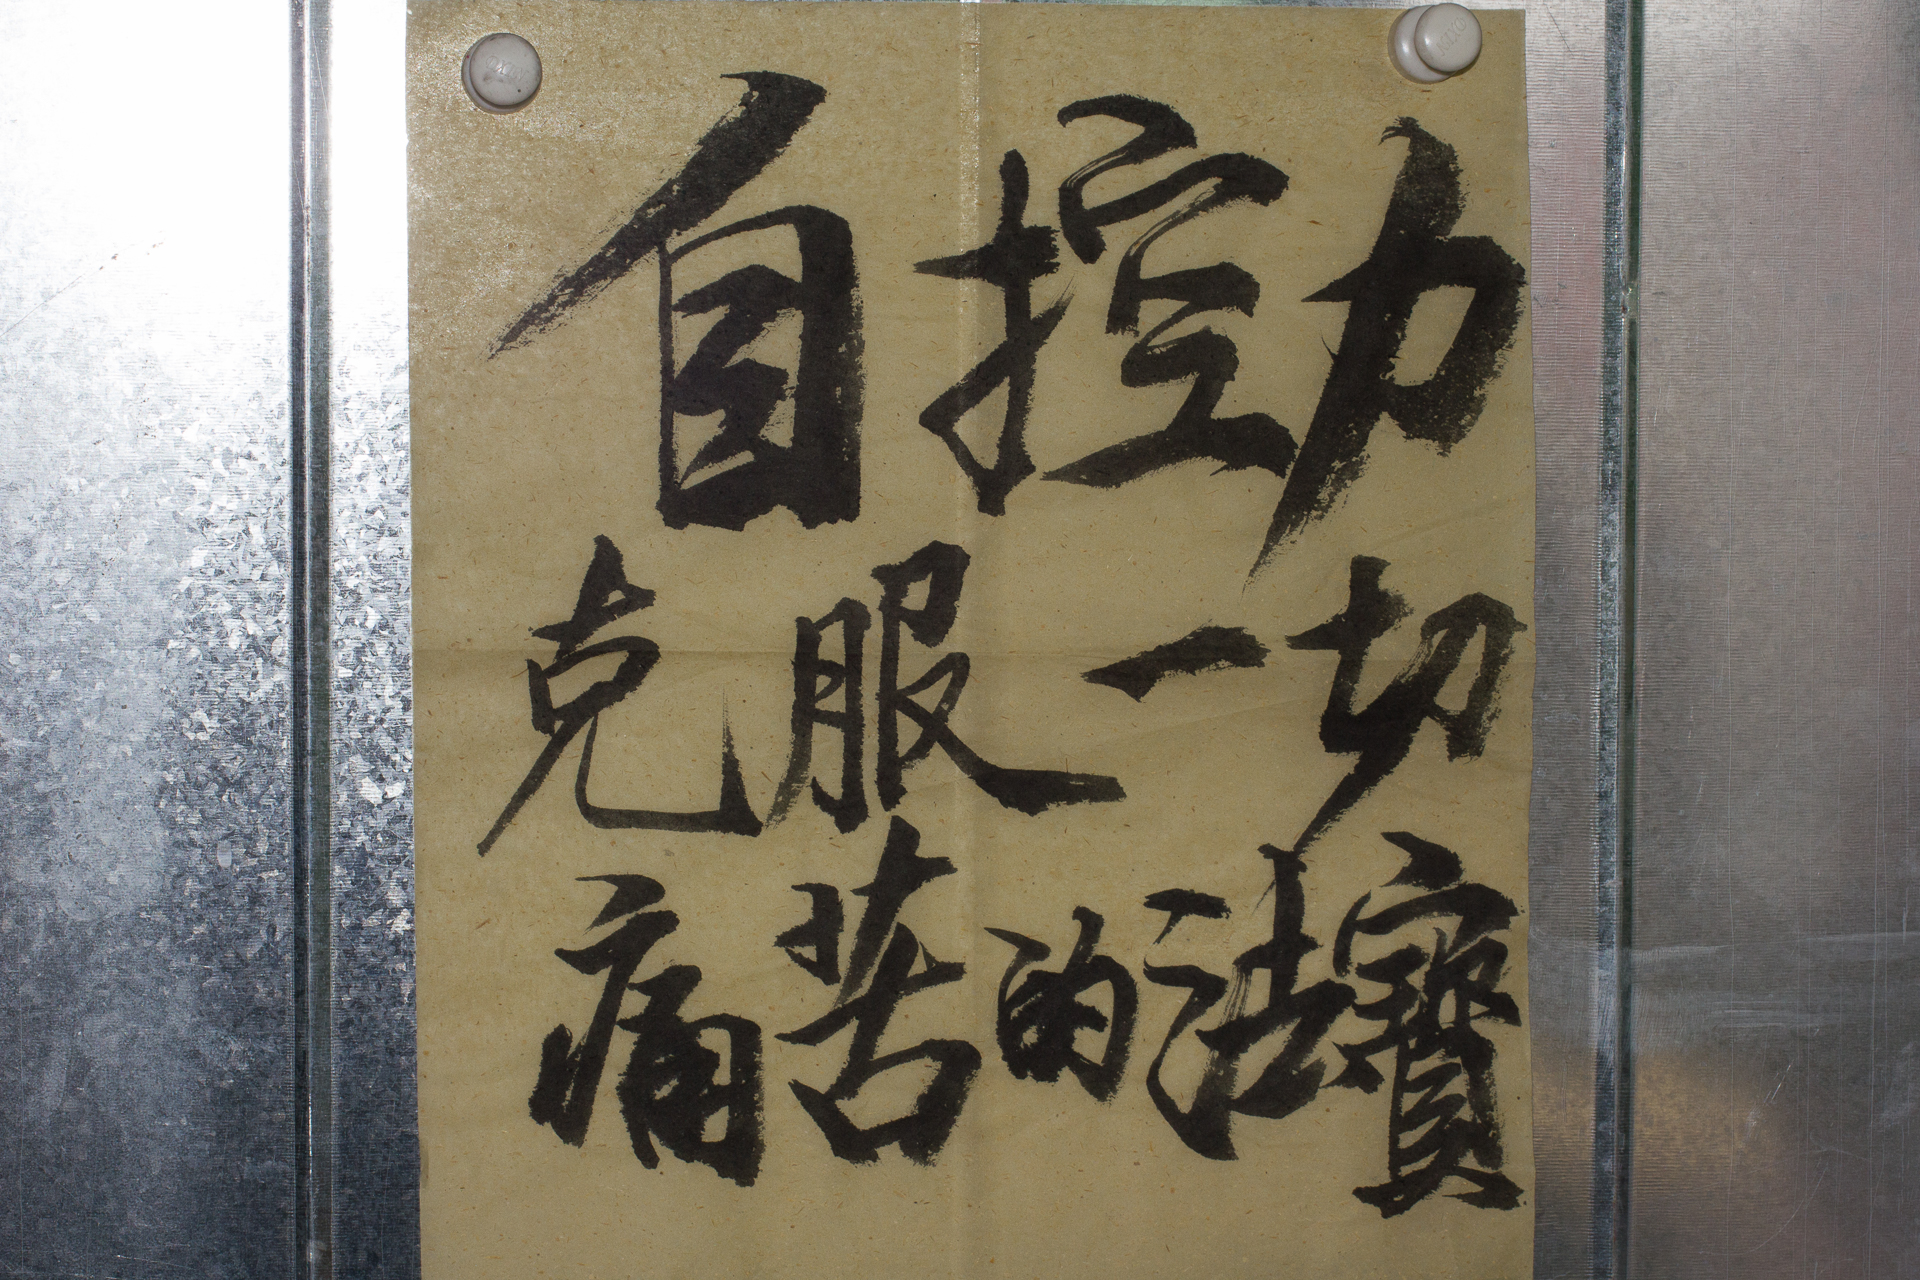 自控力
克服一切
痛苦的法寶